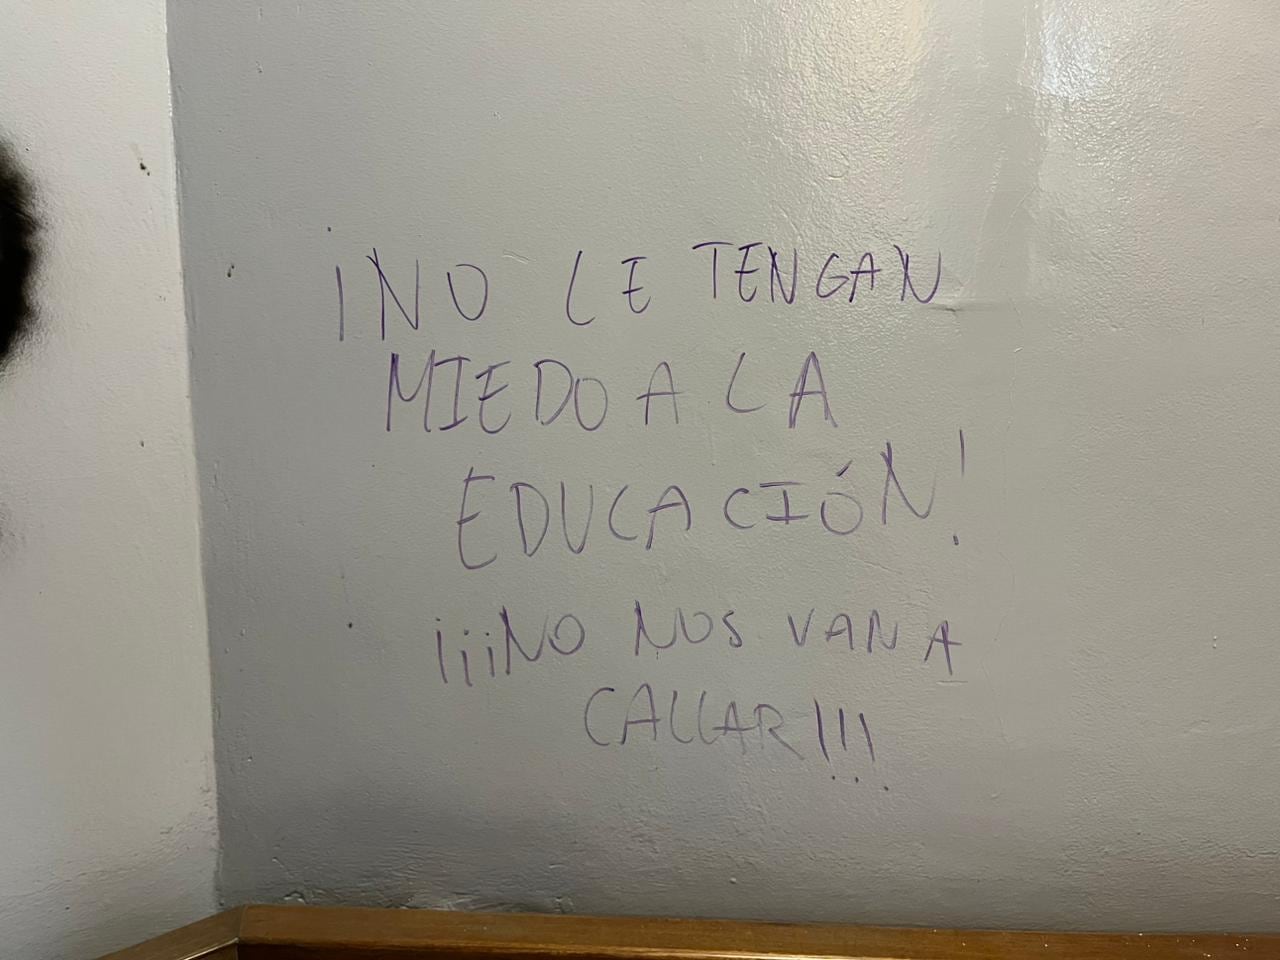 ¡NO LE TENGAN
MIEDO A LA
EDUCACIÓN!
¡¡¡NO NOS VAN A
CALLAR!!!